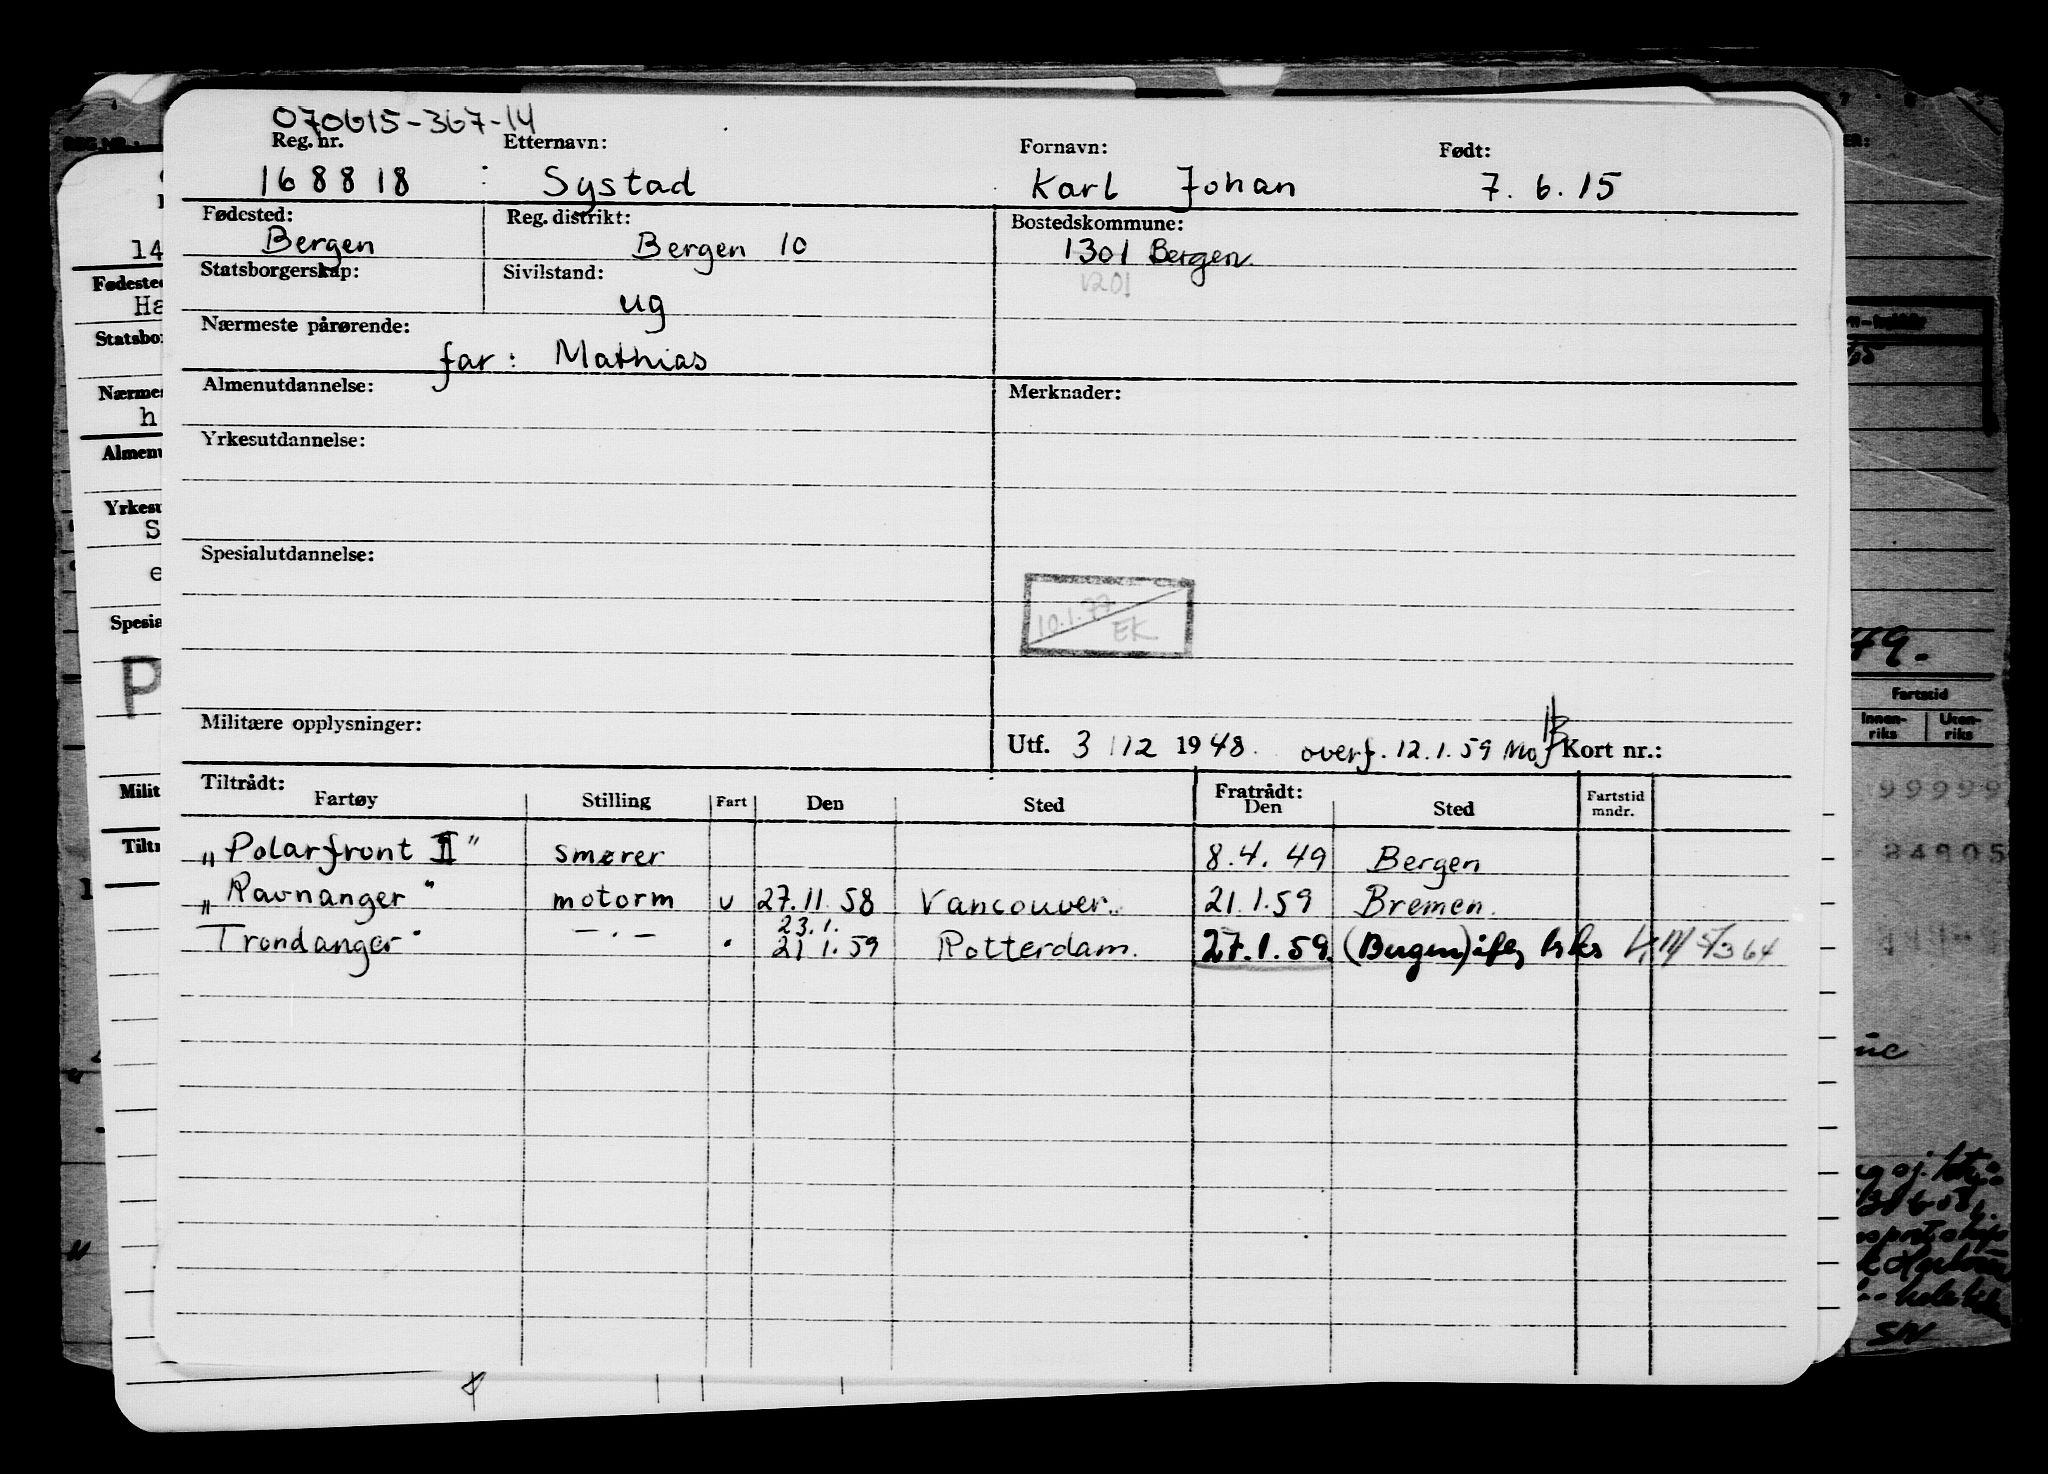 070615-367-14
Reg. nr. Etternavn: Fornavn: Født:
168818 Systad Karl Johan 7. 6. 15
Fødested: Reg. distrikt: Bostedskommune:
Bergen Bergen 10 1301 Bergen.
Statsborgerskap: Sivilstand: 1201
ug
Nærmeste pårørende:
far: Mathias
Almenutdannelse: Merknader:
Yrkesutdannelse:
Spesialutdannelse:
10.1.77
EK
Militære opplysninger:
Utf. 3 / 12 1948. overf. 12.1.59 Kort nr.:
Tiltrådt: Fratrådt:
Fartøy Stilling Fart Den Sted Den Sted Fartstid mndr.
„Polarfront II" smører 8.4.49 Bergen
„Ravnanger" motorm u 27.11.58 Vancouver. 21.1.59 Bremen.
23.1.
Trondanger" — . — " 21.1.59 Rotterdam. 27.1.59. (Bergen) iflg 5/3 64
14
Fødested
Ha
Statsbor
Nærmes
h
Almenu
Yrkesu
S
e
Spesia
P
Milit
Tiltr
1
ER:
49.
Fartstid
Innen-riks Uten-riks
99999
84905
SN